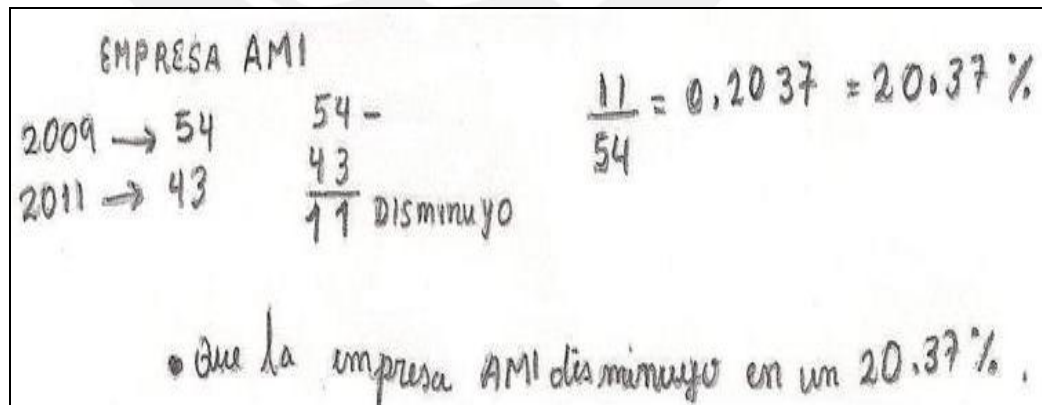 EMPRESA AMI
2009 → 54
2011 → 43
54 -
43
11 DISminuyo
11/54 = 0.2037 = 20.37 %
• Que la empresa AMI disminuyo en un 20.37 %.